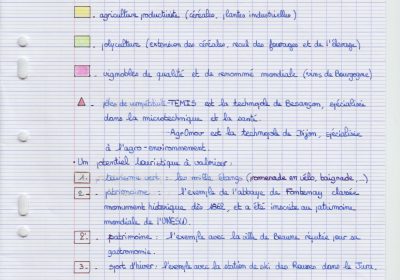 . agriculture productiviste (céréales, plantes industrielles)
. polyculture (extension des céréales, recul des fourrages et de l'élevage)
. vignobles de qualité et de renommé mondiale (vins de Bourgogne)
. pôles de compétitivité - TEMIS est la technopole de Besançon, spécialisée
dans la microtechnique et la santé.
- AgrOnov est la technopole de Dijon, spécialisée
à l'agro-environnement.
• Un potentiel touristique à valoriser :
1. . tourisme vert : les mille étangs (promenade en vélo, baignade,...)
2. . patrimoine : l'exemple de l'abbaye de Fontenay classée
monument historique dès 1862, et a été inscrite au patrimoine
mondiale de l'UNESCO.
2'. patrimoine : l'exemple avec la ville de Beaune réputée pour sa
gastronomie.
3. . sport d'hiver : l'exemple avec la station de ski des Rousses dans le Jura.